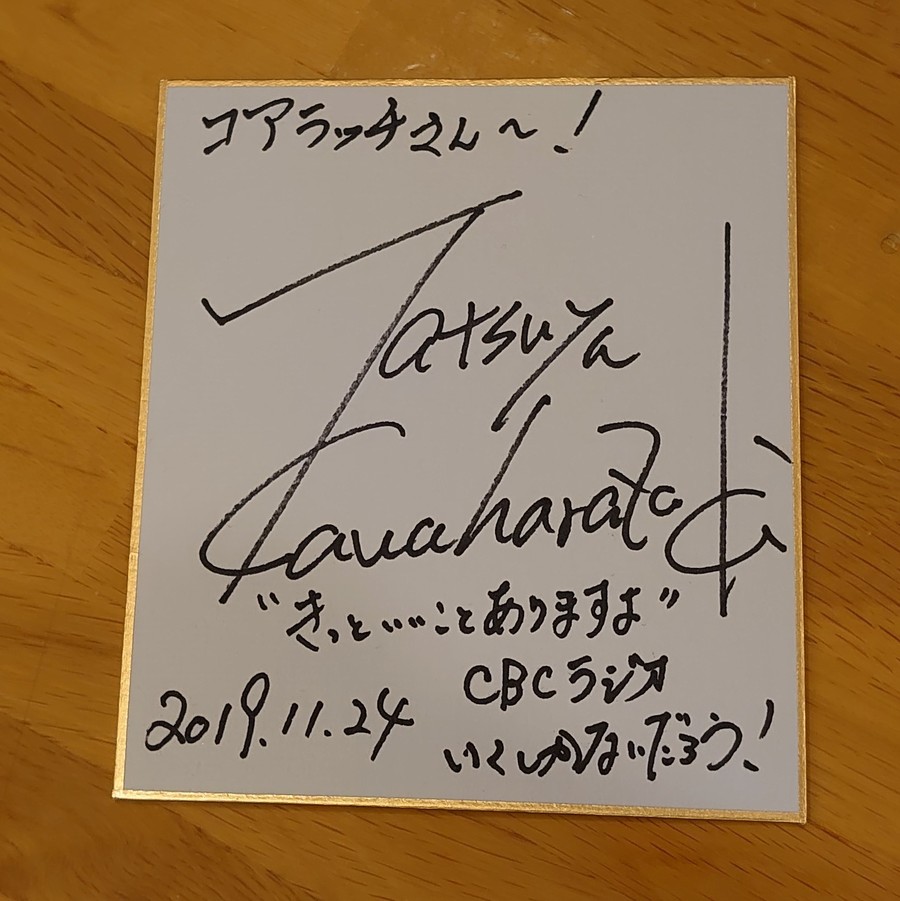 コアラッチさん〜!
Tatsuya
Kawarazaki
"きっといいことありますよ"
CBCラジオ
2019.11.24
いくしかないだろう!